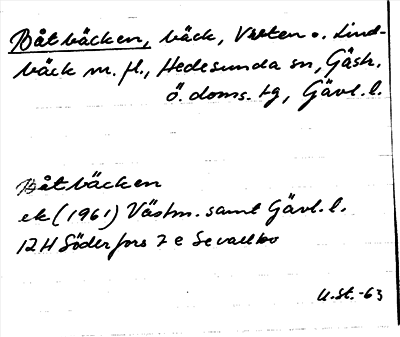 Båtbäcken, bäck, Valten o. Lind-
bäck m. fl., Hedesunda sn, Gästr.
ö. doms. tg, Gävl. l.
Båtbäcken
ek (1961) Västm. samt Gävl. l.
12H Söderfors 7 e Sevallbo
U.St.-63